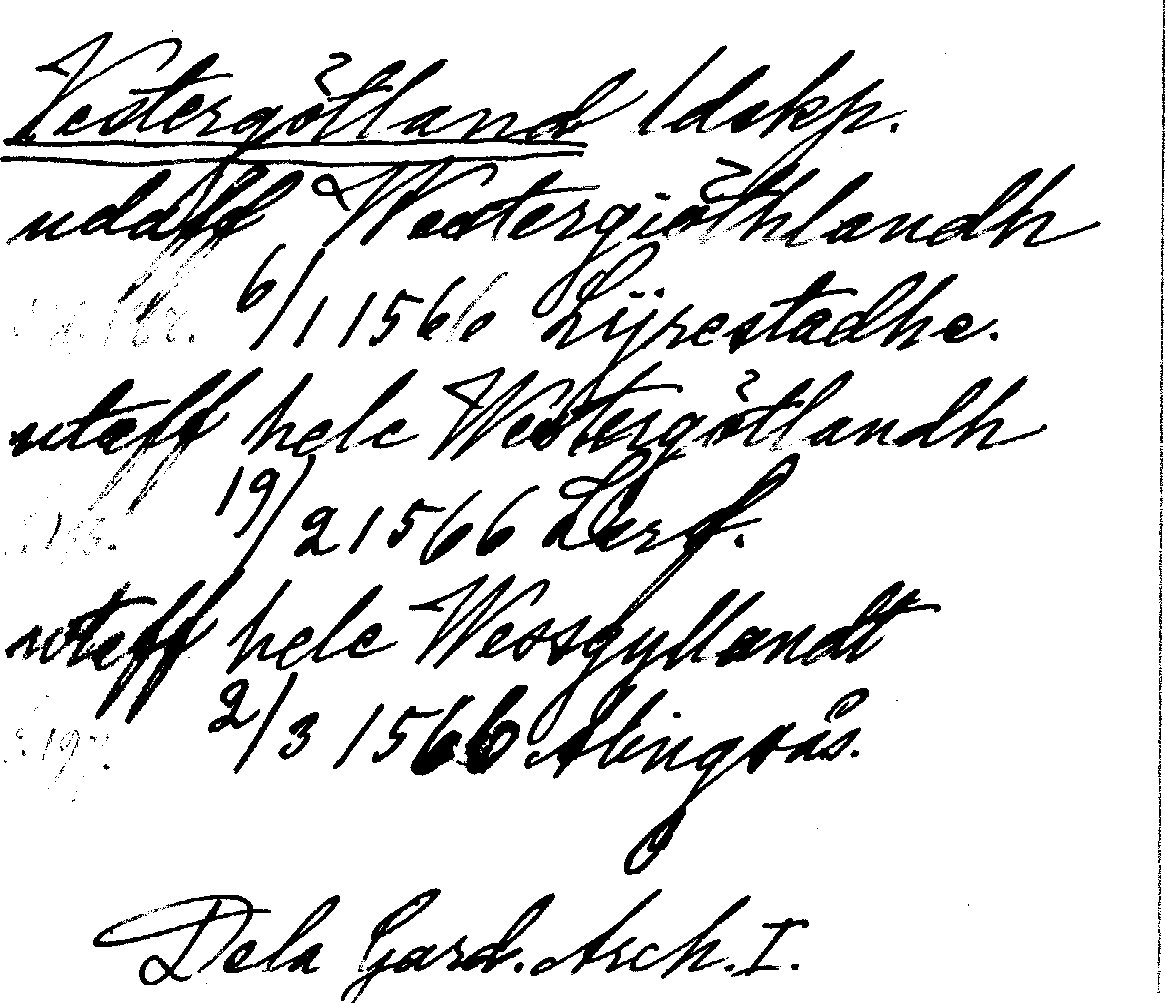 Vestergötland ldskp.
udaff Westergiöthlandh
6/1 1566 Lÿrestadhe.
wtaff hele Westergötlandh
19/2 1566 Lerf.
wtaff hele Wessgyllandt
2/3 1566 Alingsås.
Dela Gard. Arch. I.